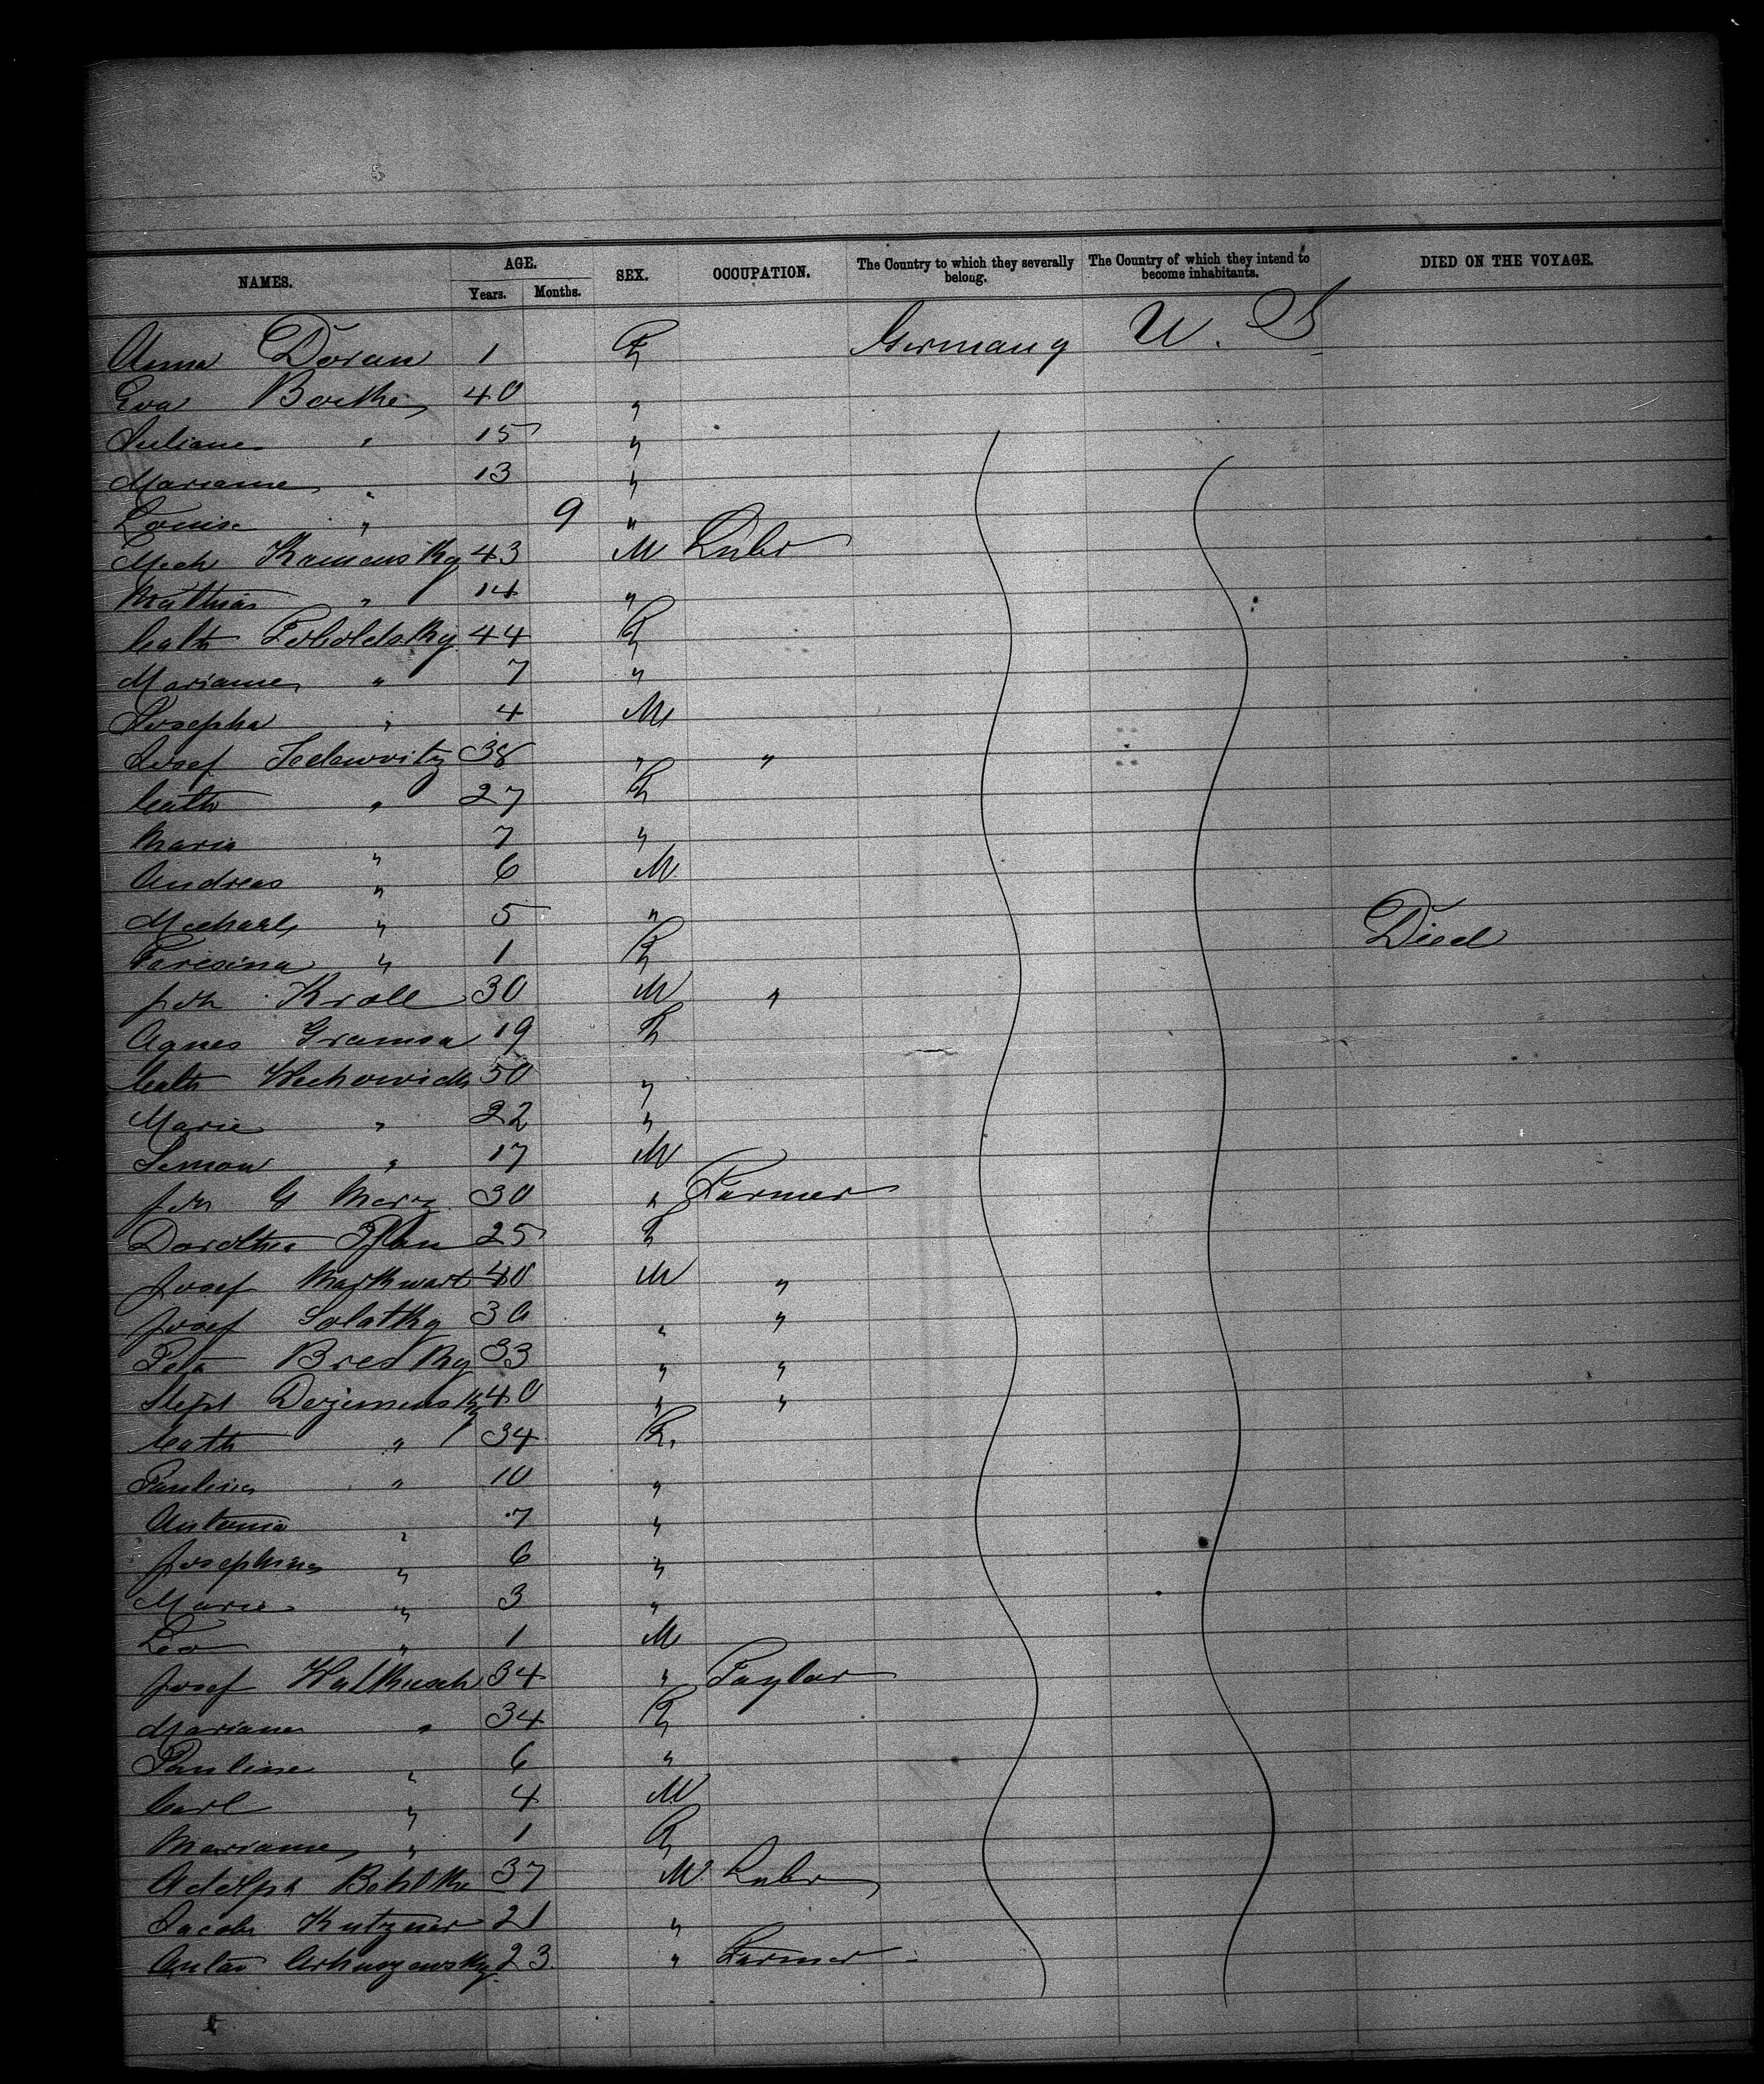 NAMES. AGE. Years. Months. SEX. OCCUPATION. The Country to which they severally belong. The Country of which they intend to become inhabitants. DIED ON THE VOYAGE.
Anna Doran 1 Germany U. S
Eva Boethe 40 "
Juliane " 15 "
Mariane " 13 "
Louise " 9 "
Mich Kamensky 43 M Labr
Mathias " 14 "
Cath 44
Mariane " 7 "
Josepha " 4 M
Josef 38 " "
Cath " 27
Maria " 7 "
Andreas " 6 M
Michael " 5 "
Teresina " 1 Died
Joh Kroll 30 M "
Agnes Gramsa 19
Cath 50 "
Marie " 22 "
Simon " 17 M
Joh G Merz 30 " Farmer
Dorothea 25
Josef Markwart 40 M "
Josef Solatky 30 " "
Peter Bresky 33 " "
Steph 40 " "
Cath " 34
Pauline " 10 "
Antonia " 7 "
Josephine " 6 "
Marie " 3 "
Leo " 1 M
Josef 34 " Taylor
Mariane " 34
Pauline " 6 "
Carl " 4 M
Mariane " 1
Adolph 37 M Labr
Jacob Kutzner 21 "
Anton 23 " Farmer